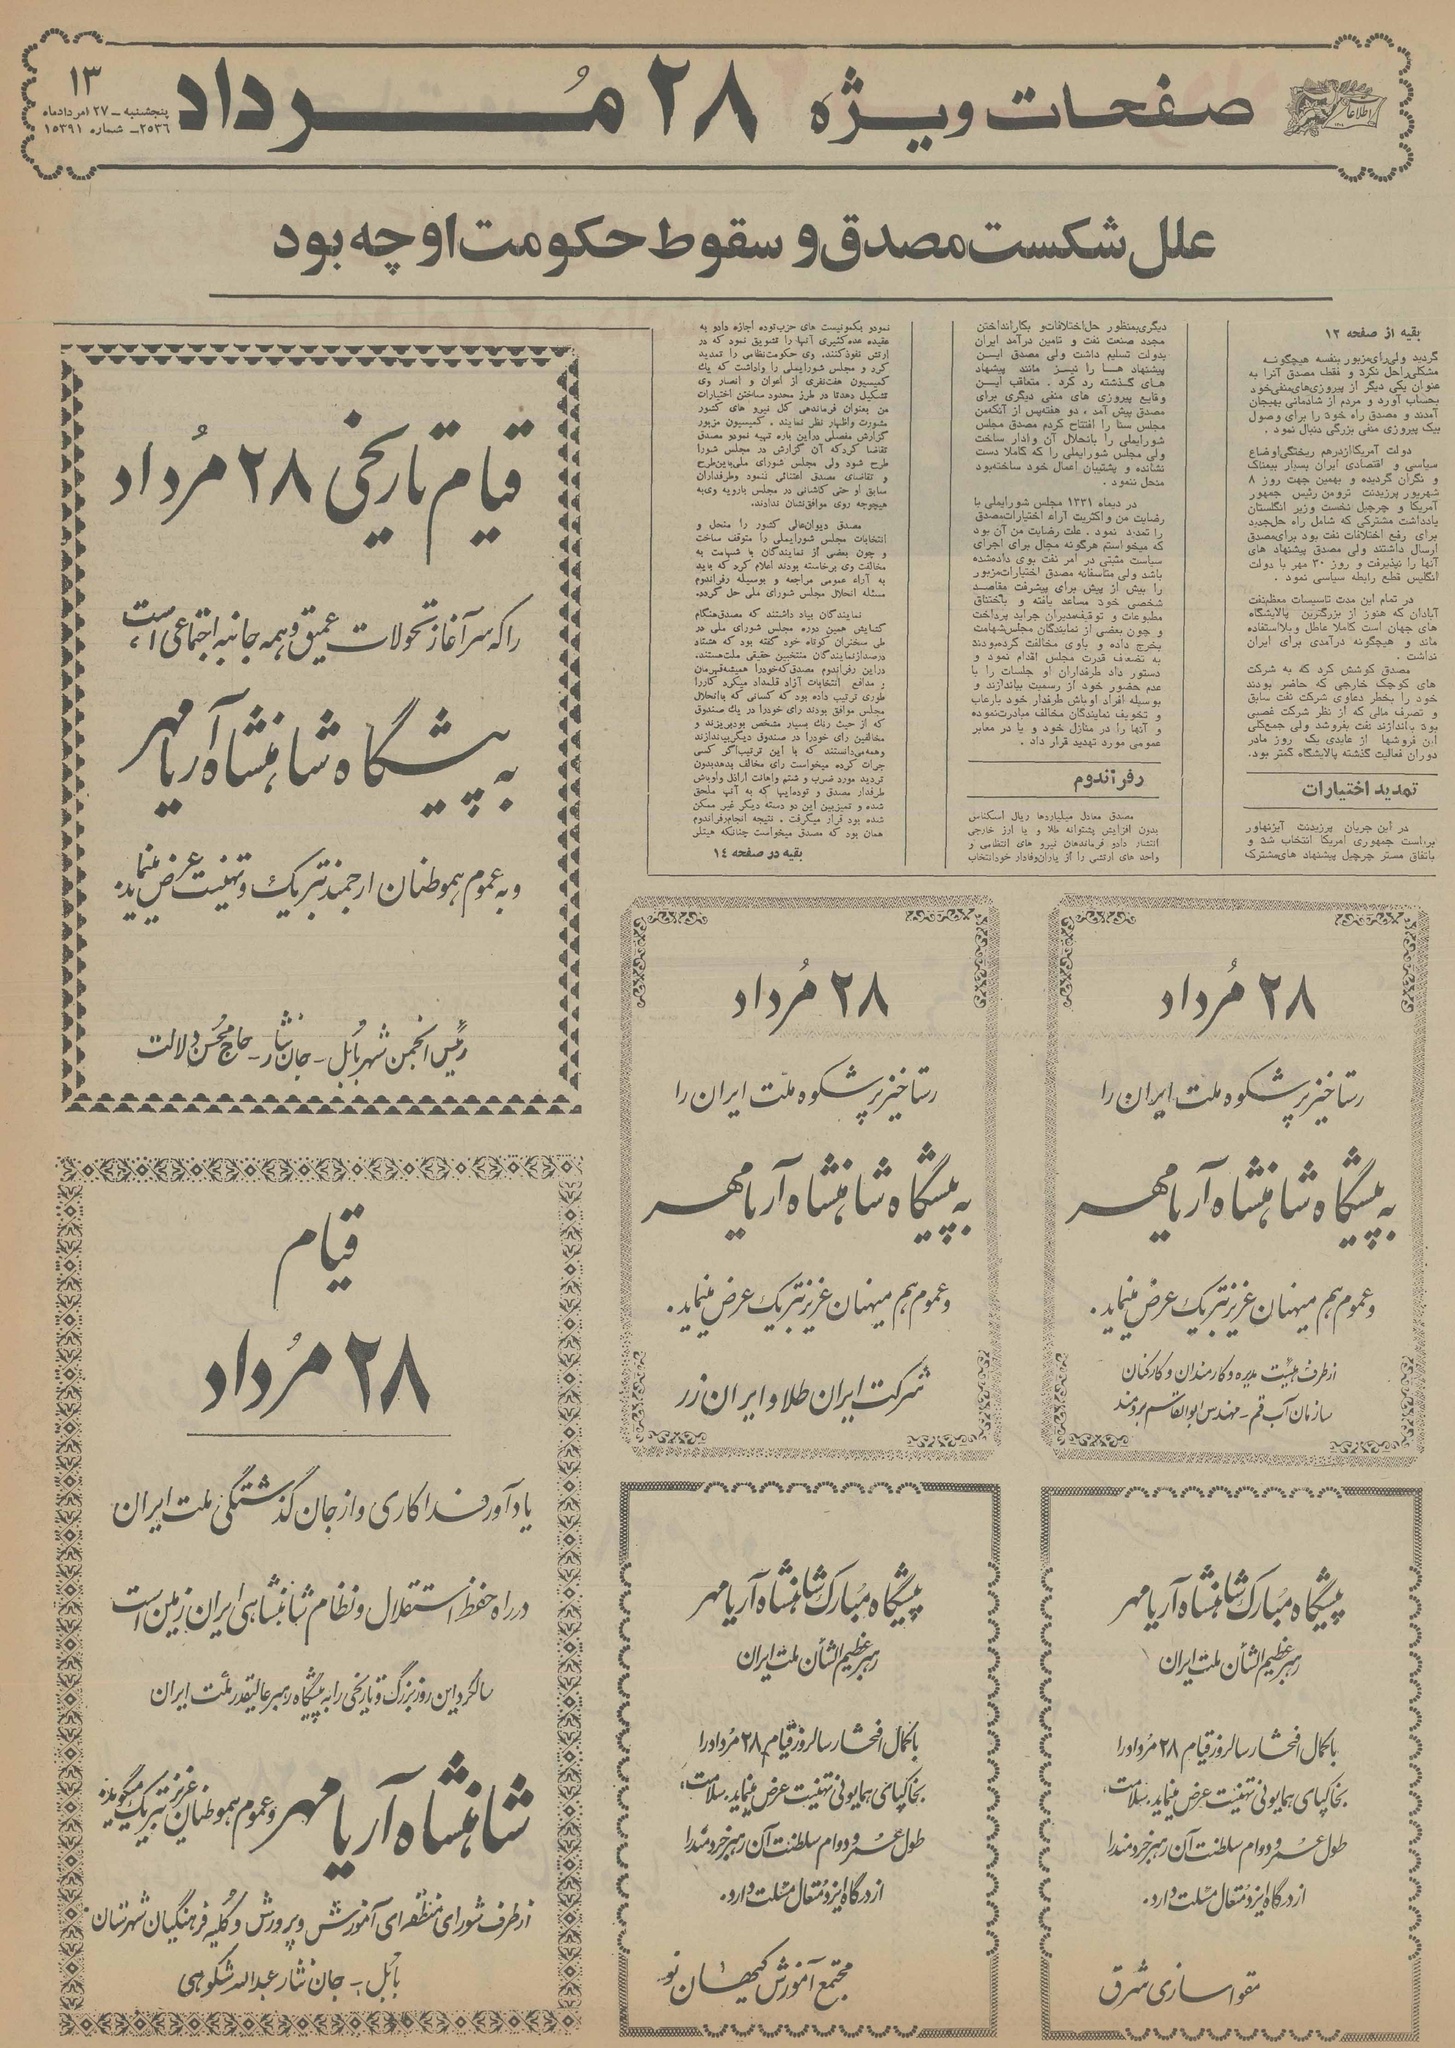 اطلاعات
صفحات ویژه ۲۸ مُرداد
۱۳
پنجشنبه – ۲۷ امردادماه
۲۵۳۶– شماره ۱۵۳۹۱
علل شکست مصدق و سقوط حکومت او چه بود
بقیه از صفحه ۱۲
گردید ولی رای مزبور بنفسه هیچگونه
مشکلی راحل نکرد و فقط مصدق آنرا به
عنوان یکی دیگر از پیروزی‌های منفی خود
بحساب آورد و مردم از شادمانی بهیجان
آمدند و مصدق راه خود را برای وصول
بیک پیروزی منفی بزرگی دنبال نمود .
دولت آمریکا ازدرهم ریختگی اوضاع
سیاسی و اقتصادی ایران بسیار بیمناک
و نگران گردیده و بهمین جهت روز ۸
شهریور پرزیدنت ترومن رئیس جمهور
آمریکا و چرچیل نخست وزیر انگلستان
یادداشت مشترکی که شامل راه حل جدید
برای رفع اختلافات نفت بود برای مصدق
ارسال داشتند ولی مصدق پیشنهاد های
آنها را نپذیرفت و روز ۳۰ مهر با دولت
انگلیس قطع رابطه سیاسی نمود .
در تمام این مدت تاسیسات معظم نفت
آبادان که هنوز از بزرگترین پالایشگاه
های جهان است کاملا عاطل و بلااستفاده
ماند و هیچگونه درآمدی برای ایران
نداشت .
مصدق کوشش کرد که به شرکت
های کوچک خارجی که حاضر بودند
خود را بخطر دعاوی شرکت نفت سابق
و تصرف مالی که از نظر شرکت غصبی
بود بیاندازند نفت بفروشد ولی جمع کلی
این فروشها از عایدی یک روز مادر
دوران فعالیت گذشته پالایشگاه کمتر بود.
تمدید اختیارات
در این جریان پرزیدنت آیزنهاور
بریاست جمهوری امریکا انتخاب شد و
باتفاق مستر چرچیل پیشنهاد های مشترک
دیگری بمنظور حل اختلافات و بکارانداختن
مجدد صنعت نفت و تامین درآمد ایران
بدولت تسلیم داشت ولی مصدق ایسن
پیشنهاد هـا را نیـز مانند پیشنهاد
های گذشته رد کرد . متعاقب ایـن
وقایع پیروزی های منفی دیگری برای
مصدق پیش آمد . دو هفته پس از آنکه من
مجلس سنا را افتتاح کردم مصدق مجلس
شورایملی را بانحلال آن وادار ساخت
ولی مجلس شورایملی را که کاملا دست
نشانده و پشتیبان اعمال خود ساخته بود
منحل ننمود .
در دیماه ۱۳۳۱ مجلس شورایملی با
رضایت من واکثریت آراء اختیارات مصدق
را تمدید نمود . علت رضایت من آن بود
که میخواستم هرگونه مجال برای اجرای
سیاست مثبتی در امر نفت بوی داده شده
باشد ولی متاسفانه مصدق اختیارات مزبور
را بیش از پیش برای پیشرفت مقاصد
شخصی خود مساعد یافته و باختناق
مطبوعات و توقیف مدیران جراید پرداخت
و چون بعضی از نمایندگان مجلس شهامت
بخرج داده و باوی مخالفت کرده بودند
به تضعیف قدرت مجلس اقدام نمود و
دستور داد طرفداران او جلسات را با
عدم حضور خود از رسمیت بیاندازند و
بوسیله افراد اوباش طرفدار خود بارعاب
و تخویف نمایندگان مخالف مبادرت نموده
و آنها را در منازل خود و یا در معابر
عمومی مورد تهدید قرار داد .
رفراندوم
مصدق معادل میلیاردها ریال اسکناس
بدون افزایش پشتوانه طلا و یا ارز خارجی
انتشار دادو فرماندهان نیرو های انتظامی و
واحد های ارتشی را از یاران وفادار خودانتخاب
نمودو بکمونیست های حزب توده اجازه دادو به
عقیده عده کثیری آنها را تشویق نمود که در
ارتش نفوذکنند. وی حکومت نظامی را تمدید
کرد و مجلس شورایملی را واداشت که یك
کمیسیون هفت نفری از اعوان و انصار وی
تشکیل دهدتا در طرز محدود ساختن اختیارات
من بعنوان فرماندهی کل نیرو های کشور
مشورت واظهار نظر نمایند . کمیسیون مزبور
گزارش مفصلی دراین باره تهیه نمودو مصدق
تقاضا کرد که آن گزارش در مجلس شورا
طرح شود ولی مجلس شورای ملی باین طرح
و تقاضای مصدق اعتنائی ننمود وطرفداران
سابق او حتی کاشانی در مجلس بارویه وی به
هیچوجه روی موافق نشان ندادند.
مصدق دیوان عالی کشور را منحل و
انتخابات مجلس شورایملی را متوقف ساخت
و چون بعضی از نمایندگان با شهامت به
مخالفت وی برخاسته بودند اعلام کرد که باید
به آراء عمومی مراجعه و بوسیله رفراندوم
مسئله انحلال مجلس شورای ملی حل گردد.
نمایندگان بیاد داشتند که مصدق هنگام
گشایش همین دوره مجلس شورای ملی در
طی سخنران کوتاه خود گفته بود که هشتاد
درصدازنمایندگان منتخبین حقیقی ملت هستند.
دراین رفراندوم مصدق که خودرا همیشه قهرمان
و مدافع انتخابات آزاد قلمداد میکرد کاررا
طوری ترتیب داده بود که کسانی که باانحلال
مجلس موافق بودند رای خودرا در یک صندوق
که از حیث رنك بسیار مشخص بودبریزند و
مخالفین رای خودرا در صندوق دیگربیاندازند
وهمه میدانستند که با این ترتیب اگر کسی
جرات کرده میخواست رای مخالف بدهدبدون
تردید مورد ضرب و شتم واهانت اراذل واوباش
طرفدار مصدق و توده‌ایها که به آنها ملحق
شده و تمیزبین این دو دسته دیگر غیر ممکن
شده بود قرار میگرفت . نتیجه انجام رفراندوم
همان بود که مصدق میخواست چنانکه هیتلی
بقیه در صفحه ۱۴
قیام تاریخی ۲۸ مُرداد
را که سرآغاز تحولات عمیق و همه جانبه اجتماعی است،
به پیشگاه شاهنشاه آریامهر
و به عموم هموطنان ارجمند تبریک و تهنیت عرض مینماید.
رئیس انجمن شهر بابل – جان نثار – حاج محسن دلالت
۲۸ مُرداد
رستاخیز پرشکوه ملت ایران را
به پیشگاه شاهنشاه آریامهر
و عموم هم میهنان عزیز تبریک عرض مینماید.
از طرف هیئت مدیره و کارمندان و کارکنان
سازمان آب قم – مهندس ابوالقاسم برومند
۲۸ مُرداد
رستاخیز پرشکوه ملت ایران را
به پیشگاه شاهنشاه آریامهر
و عموم هم میهنان عزیز تبریک عرض مینماید.
شرکت ایران طلا و ایران زر
قیام
۲۸ مُرداد
یادآور فداکاری و از جان گذشتگی ملت ایران
در راه حفظ استقلال و نظام شاهنشاهی ایران زمین است
سالگرد این روز بزرگ و تاریخی را به پیشگاه رهبر عالیقدر ملت ایران
شاهنشاه آریامهر و عموم هموطنان عزیز تبریک میگوید.
از طرف شورای منطقه‌ای آموزش و پرورش و کلیه فرهنگیان شهرستان
بابل – جان نثار عبدالله شکوهی
پیشگاه مبارک شاهنشاه آریامهر
رهبر عظیم الشأن ملت ایران
با کمال افتخار سالروز قیام ۲۸ مرداد را
بخاکپای همایونی تهنیت عرض مینماید. سلامت،
طول عمر و دوام سلطنت آن رهبر خردمند را
از درگاه ایزد متعال مسئلت دارد.
مقواسازی شرق
پیشگاه مبارک شاهنشاه آریامهر
رهبر عظیم الشأن ملت ایران
با کمال افتخار سالروز قیام ۲۸ مرداد را
بخاکپای همایونی تهنیت عرض مینماید. سلامت،
طول عمر و دوام سلطنت آن رهبر خردمند را
از درگاه ایزد متعال مسئلت دارد.
مجتمع آموزش کیهان نو